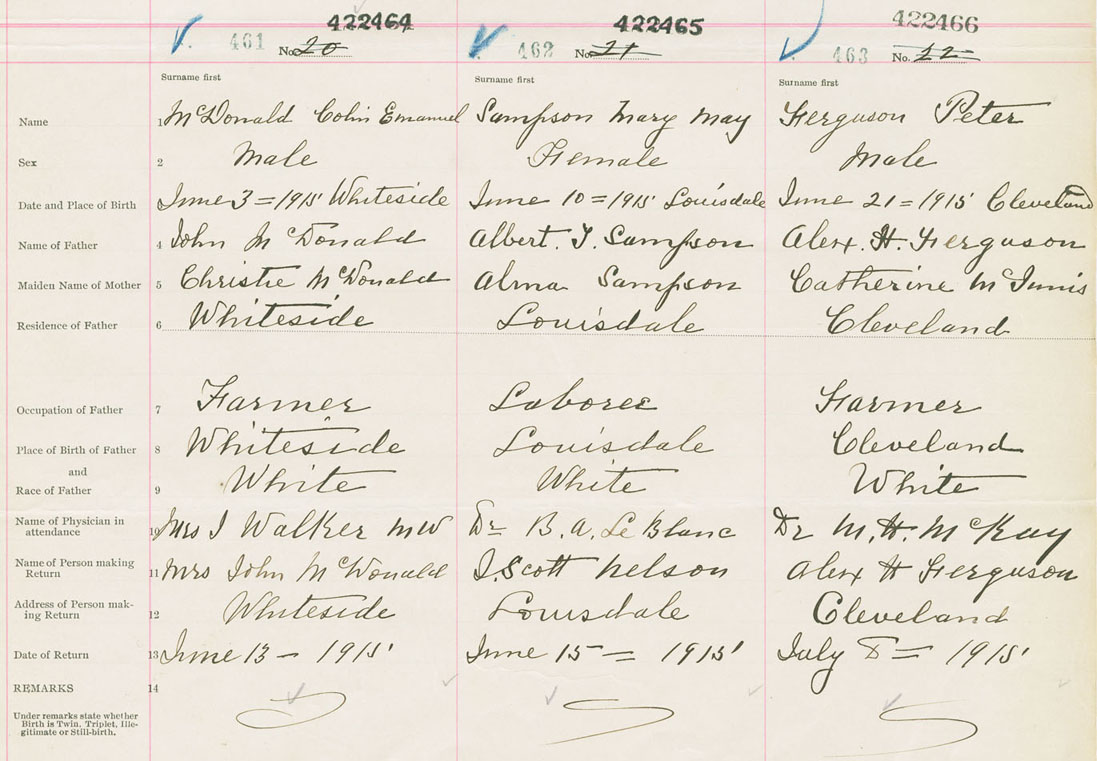 422464 422465 422466
461 No. 20 462 No. 21 463 No. 22
Surname first Surname first Surname first
Name 1 McDonald Colin Emanuel Sampson Mary May Ferguson Peter
Sex 2 Male Female Male
Date and Place of Birth 3 June 3 = 1915 Whiteside June 10 = 1915 Louisdale June 21 = 1915 Cleveland
Name of Father 4 John McDonald Albert. T. Sampson Alex. H. Ferguson
Maiden Name of Mother 5 Christie McDonald Alma Sampson Catherine McInnis
Residence of Father 6 Whiteside Louisdale Cleveland
Occupation of Father 7 Farmer Laborer Farmer
Place of Birth of Father 8 Whiteside Louisdale Cleveland
and
Race of Father 9 White White White
Name of Physician in
attendance 10 Mrs J Walker MW Dr B. A. Le Blanc Dr M. H. McKay
Name of Person making
Return 11 Mrs John McDonald J. Scott Nelson Alex H Ferguson
Address of Person mak-
ing Return 12 Whiteside Louisdale Cleveland
Date of Return 13 June 13 - 1915 June 15 = 1915 July 8 = 1915
REMARKS 14
Under remarks state whether
Birth is Twin, Triplet, Ille-
gitimate or Still-birth.